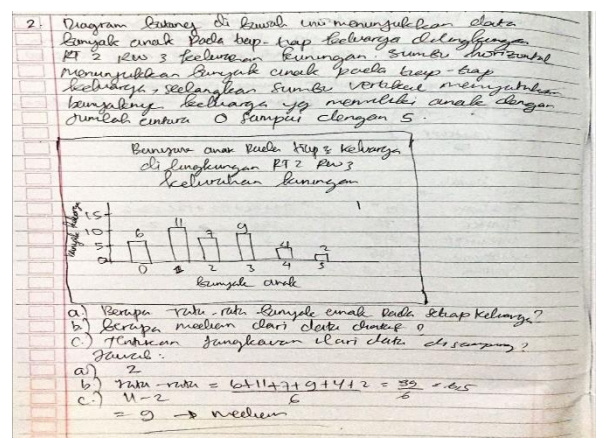 2. Diagram batang di bawah ini menunjukkan data
banyak anak pada tiap-tiap keluarga dilingkungan
RT 2 RW 3 kelurahan kuningan. Sumbu horizontal
menunjukkan banyak anak pada tiap-tiap
keluarga, sedangkan sumbu vertikal menyatakan
banyaknya keluarga yg memiliki anak dengan
jumlah antara 0 sampai dengan 5.
Banyaknya anak pada tiap2 keluarga
di lingkungan RT 2 RW 3
kelurahan kuningan
15
10
5
0
6 11 7 9 4 2
0 1 2 3 4 5
Banyak anak
a.) Berapa rata-rata banyak anak pada setiap keluarga?
b.) Berapa median dari data diatas?
c.) Tentukan jangkauan dari data disamping?
Jawab:
a.) 2
b.) rata-rata = 6+11+7+9+4+2 / 6 = 39 / 6 = 6,5
c.) 11-2
= 9 → median